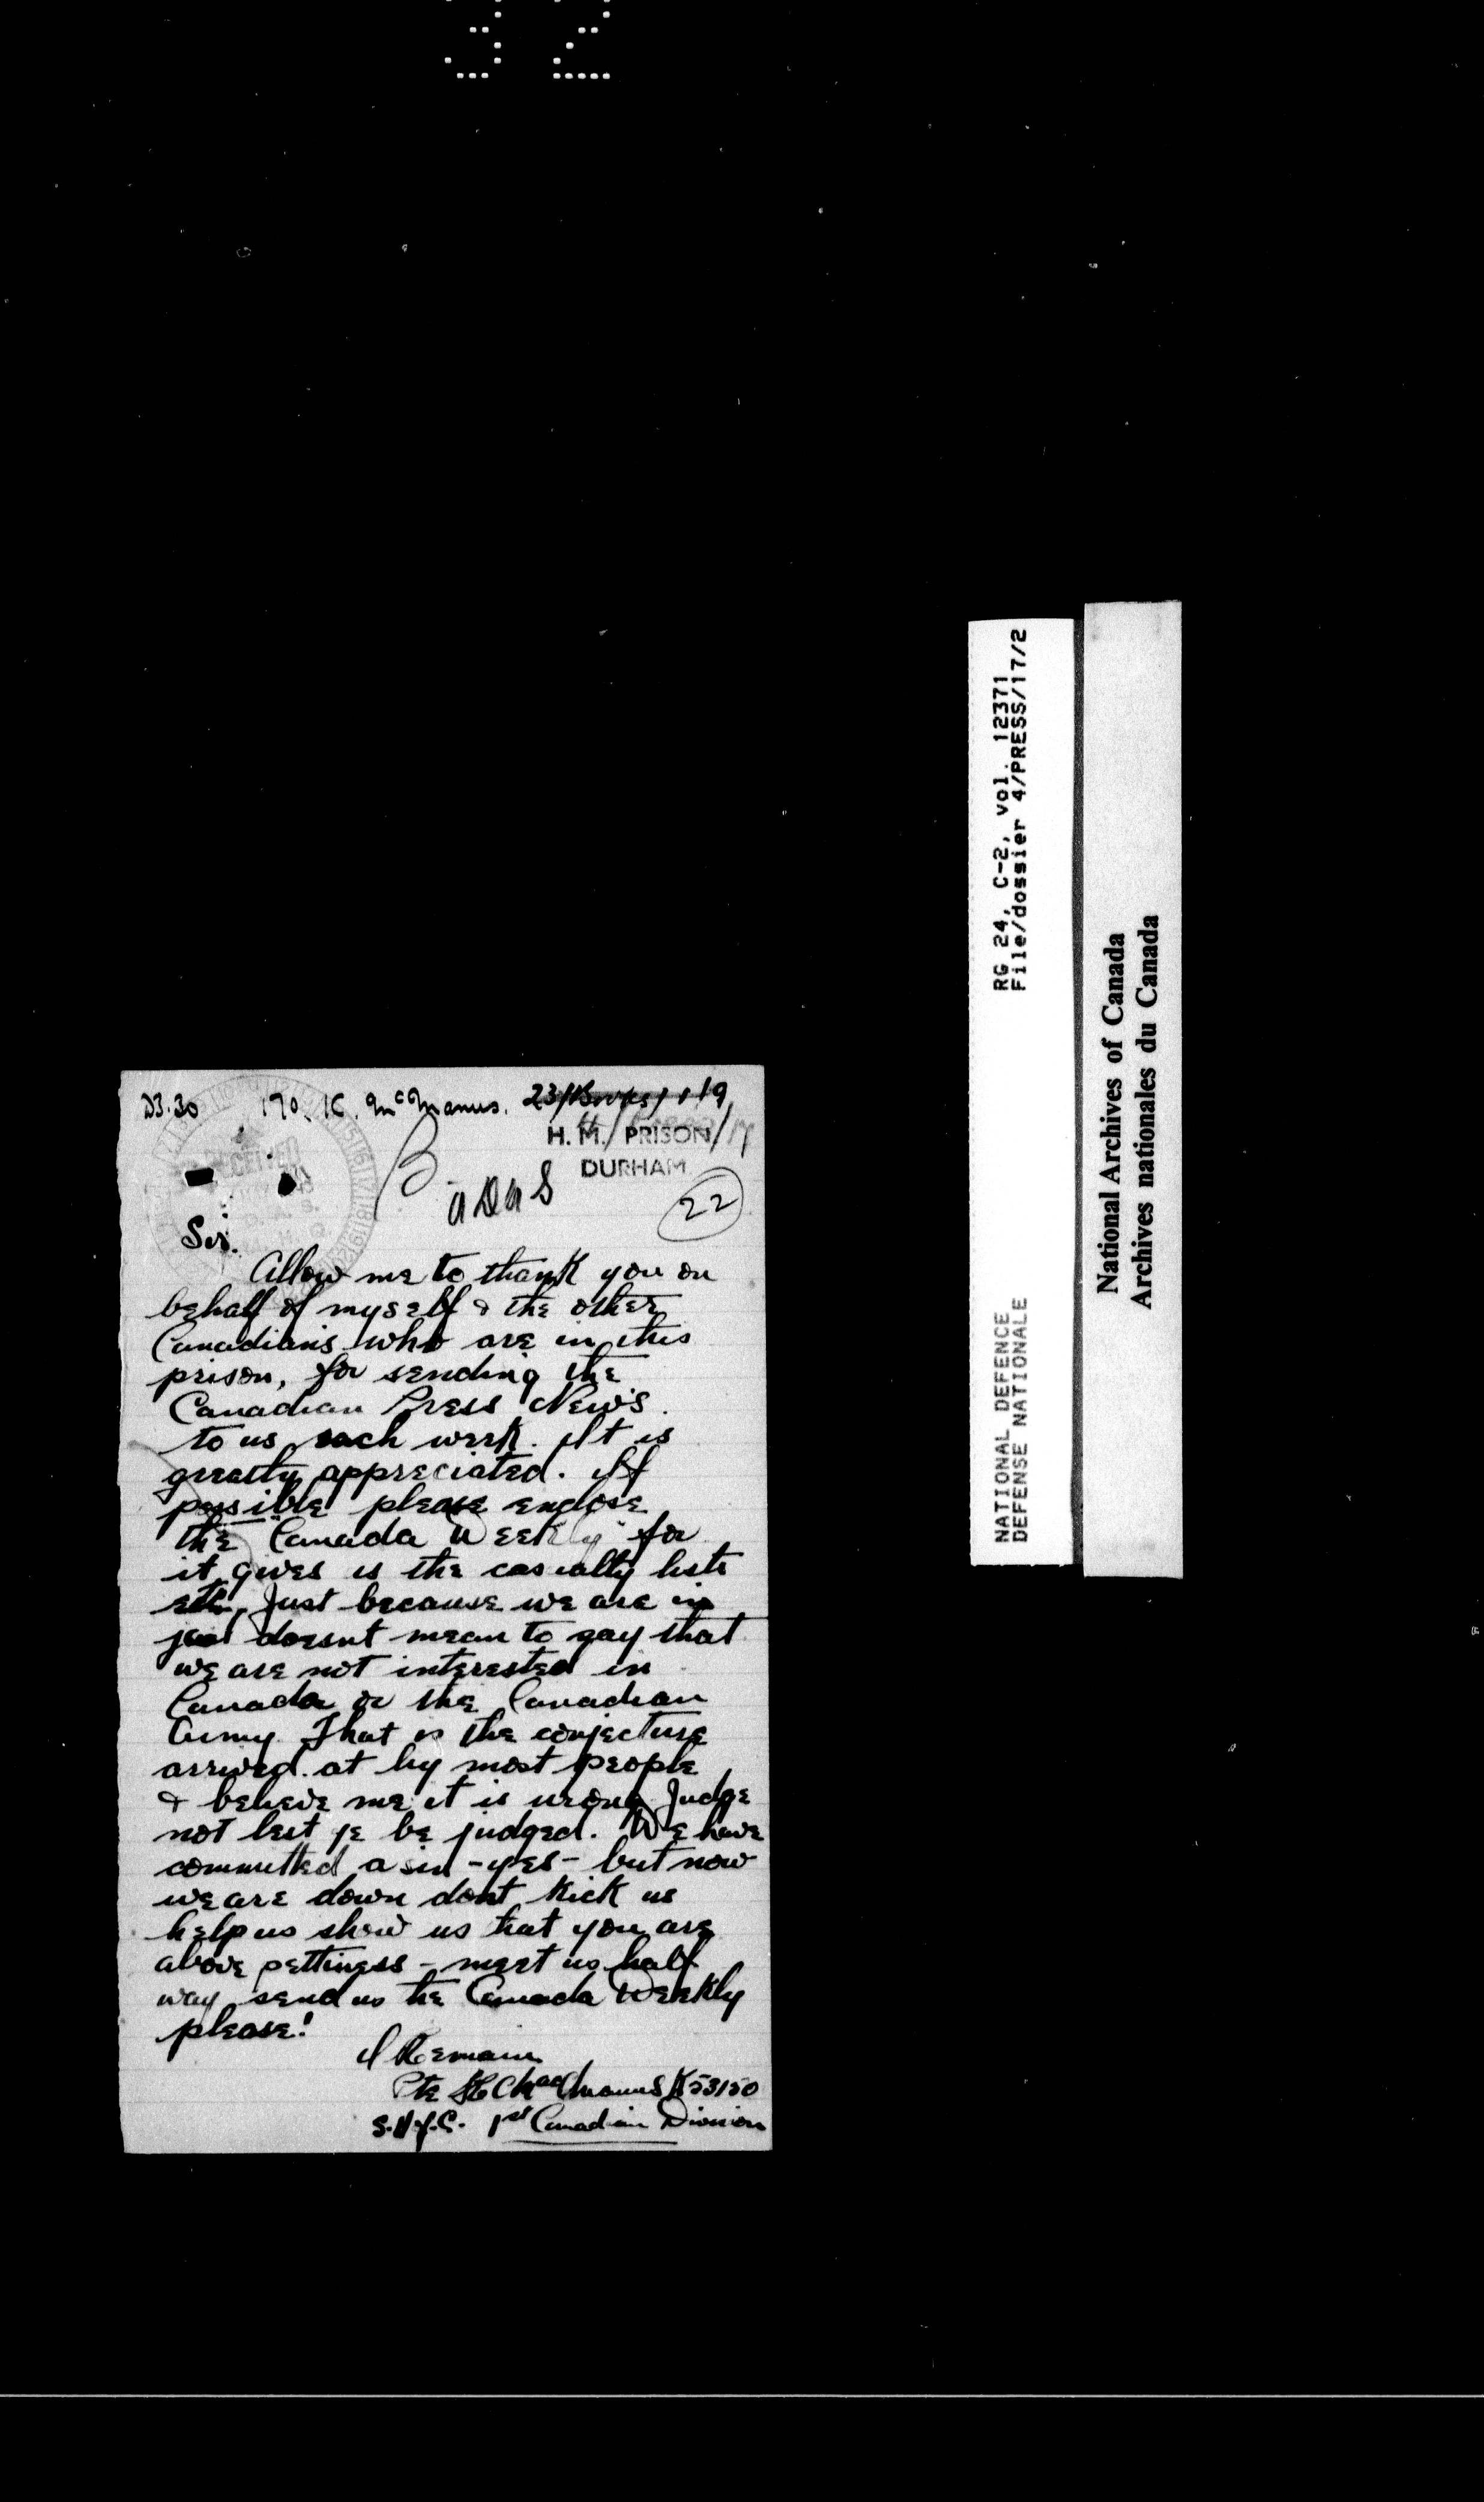 32
D3.30 170. K. McManus. 23/ /1/9
H. M. PRISON
DURHAM
22
RECEIVED
Sir.
Allow me to thank you on
behalf of myself & the other
Canadians who are in this
prison, for sending the
Canadian Press News
to us each week. It is
greatly appreciated. If
possible please enclose
the "Canada Weekly" for
it gives is the casualty lists
etc. Just because we are in
jail doesnt mean to say that
we are not interested in
Canada or the Canadian
Army. That is the conjecture
arrived at by most people
& believe me it is wrong. Judge
not lest ye be judged. We have
committed a sin - yes - but now
we are down dont kick us
help us show us that you are
above pettiness - meet us half
way send us the Canada Weekly
please!
I Remain
Pte K53150
1st Canadian Division
RG 24, C-2, vol. 12371
File/dossier 4/PRESS/17/2
NATIONAL DEFENCE
DEFENSE NATIONALE
National Archives of Canada
Archives nationales du Canada